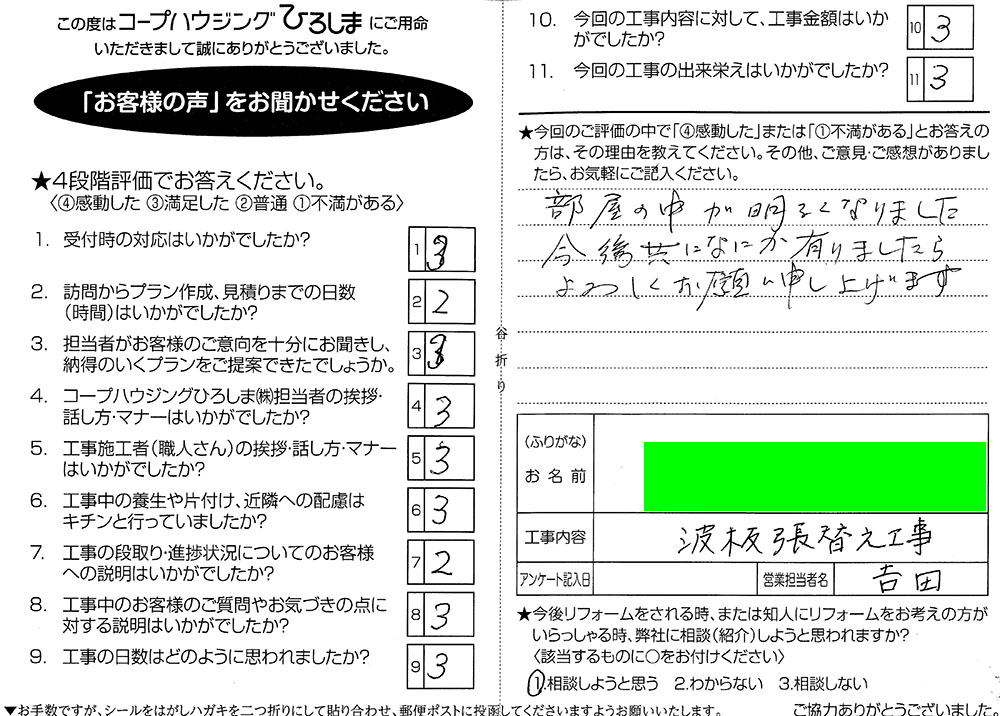 この度はコープハウジングひろしまにご用命
いただきまして誠にありがとうございました。
「お客様の声」をお聞かせください
★4段階評価でお答えください。
〈④感動した ③満足した ②普通 ①不満がある〉
1. 受付時の対応はいかがでしたか?
1 3
2. 訪問からプラン作成、見積りまでの日数
(時間)はいかがでしたか?
2 2
3. 担当者がお客様のご意向を十分にお聞きし、
納得のいくプランをご提案できたでしょうか。
3 3
4. コープハウジングひろしま㈱担当者の挨拶・
話し方・マナーはいかがでしたか?
4 3
5. 工事施工者(職人さん)の挨拶・話し方・マナー
はいかがでしたか?
5 3
6. 工事中の養生や片付け、近隣への配慮は
キチンと行っていましたか?
6 3
7. 工事の段取り・進捗状況についてのお客様
への説明はいかがでしたか?
7 2
8. 工事中のお客様のご質問やお気づきの点に
対する説明はいかがでしたか?
8 3
9. 工事の日数はどのように思われましたか?
9 3
▼お手数ですが、シールをはがしハガキを二つ折りにして貼り合わせ、郵便ポストに投函してくださいますようお願いいたします。
谷折り
10. 今回の工事内容に対して、工事金額はいか
がでしたか?
10 3
11. 今回の工事の出来栄えはいかがでしたか?
11 3
★今回のご評価の中で「④感動した」または「①不満がある」とお答えの
方は、その理由を教えてください。その他、ご意見・ご感想がありまし
たら、お気軽にご記入ください。
部屋の中が明るくなりました
今後共になにか有りましたら
よろしくお願い申し上げます
(ふりがな)
お名前
工事内容 波板張替え工事
アンケート記入日 営業担当者名 吉田
★今後リフォームをされる時、または知人にリフォームをお考えの方が
いらっしゃる時、弊社に相談(紹介)しようと思われますか?
〈該当するものに○をお付けください〉
1.相談しようと思う 2.わからない 3.相談しない
ご協力ありがとうございました。